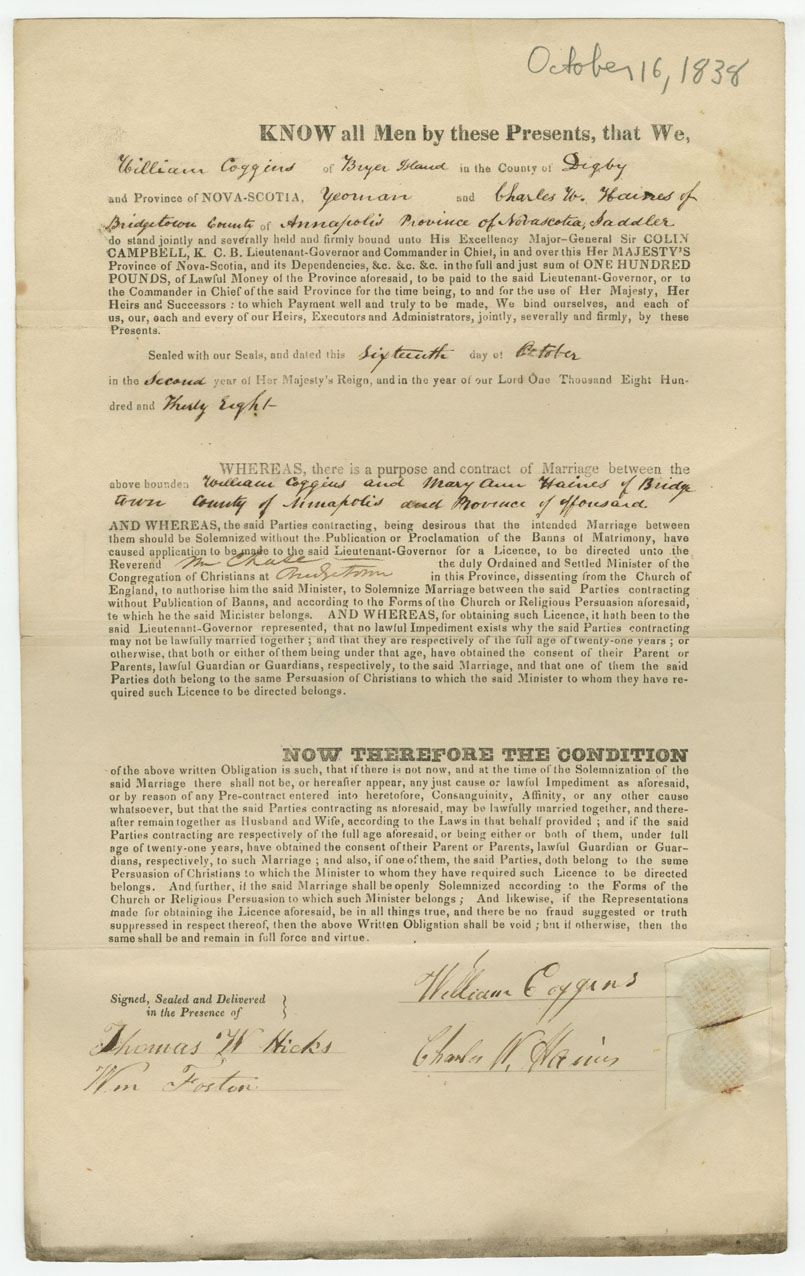 October 16, 1838
KNOW all Men by these Presents, that We,
William Coggins of Bryer Island in the County of Digby
and Province of NOVA-SCOTIA, Yeoman and Charles W. Haines of
Bridgetown County of Annapolis Province of Novascotia, Saddler
do stand jointly and severally held and firmly bound unto His Excellency Major-General Sir COLIN
CAMPBELL, K. C. B. Lieutenant-Governor and Commander in Chief, in and over this Her MAJESTY'S
Province of Nova-Scotia, and its Dependencies, &c. &c. &c. in the full and just sum of ONE HUNDRED
POUNDS, of Lawful Money of the Province aforesaid, to be paid to the said Lieutenant-Governor, or to
the Commander in Chief of the said Province for the time being, to and for the use of Her Majesty, Her
Heirs and Successors : to which Payment well and truly to be made, We bind ourselves, and each of
us, our, each and every of our Heirs, Executors and Administrators, jointly, severally and firmly, by these
Presents.
Sealed with our Seals, and dated this Sixteenth day of October
in the Second year of Her Majesty's Reign, and in the year of our Lord One Thousand Eight Hun-
dred and Thirty Eight
WHEREAS, there is a purpose and contract of Marriage between the
above bounden William Coggins and Mary Ann Haines of Bridge
town County of Annapolis and Province of
AND WHEREAS, the said Parties contracting, being desirous that the intended Marriage between
them should be Solemnized without the Publication or Proclamation of the Banns of Matrimony, have
caused application to be made to the said Lieutenant-Governor for a Licence, to be directed unto the
Reverend Wm Chase the duly Ordained and Settled Minister of the
Congregation of Christians at Bridgetown in this Province, dissenting from the Church of
England, to authorise him the said Minister, to Solemnize Marriage between the said Parties contracting
without Publication of Banns, and according to the Forms of the Church or Religious Persuasion aforesaid,
to which he the said Minister belongs. AND WHEREAS, for obtaining such Licence, it hath been to the
said Lieutenant-Governor represented, that no lawful Impediment exists why the said Parties contracting
may not be lawfully married together ; and that they are respectively of the full age of twenty-one years ; or
otherwise, that both or either of them being under that age, have obtained the consent of their Parent or
Parents, lawful Guardian or Guardians, respectively, to the said Marriage, and that one of them the said
Parties doth belong to the same Persuasion of Christians to which the said Minister to whom they have re-
quired such Licence to be directed belongs.
NOW THEREFORE THE CONDITION
of the above written Obligation is such, that if there is not now, and at the time of the Solemnization of the
said Marriage there shall not be, or hereafter appear, any just cause or lawful Impediment as aforesaid,
or by reason of any Pre-contract entered into heretofore, Consanguinity, Affinity, or any other cause
whatsoever, but that the said Parties contracting as aforesaid, may be lawfully married together, and there-
after remain together as Husband and Wife, according to the Laws in that behalf provided ; and if the said
Parties contracting are respectively of the full age aforesaid, or being either or both of them, under full
age of twenty-one years, have obtained the consent of their Parent or Parents, lawful Guardian or Guar-
dians, respectively, to such Marriage ; and also, if one of them, the said Parties, doth belong to the same
Persuasion of Christians to which the Minister to whom they have required such Licence to be directed
belongs. And further, if the said Marriage shall be openly Solemnized according to the Forms of the
Church or Religious Persuasion to which such Minister belongs ; And likewise, if the Representations
made for obtaining the Licence aforesaid, be in all things true, and there be no fraud suggested or truth
suppressed in respect thereof, then the above Written Obligation shall be void ; but if otherwise, then the
same shall be and remain in full force and virtue.
Signed, Sealed and Delivered
in the Presence of
William Coggins
Thomas W Hicks
Charles W. Haines
Wm Foster